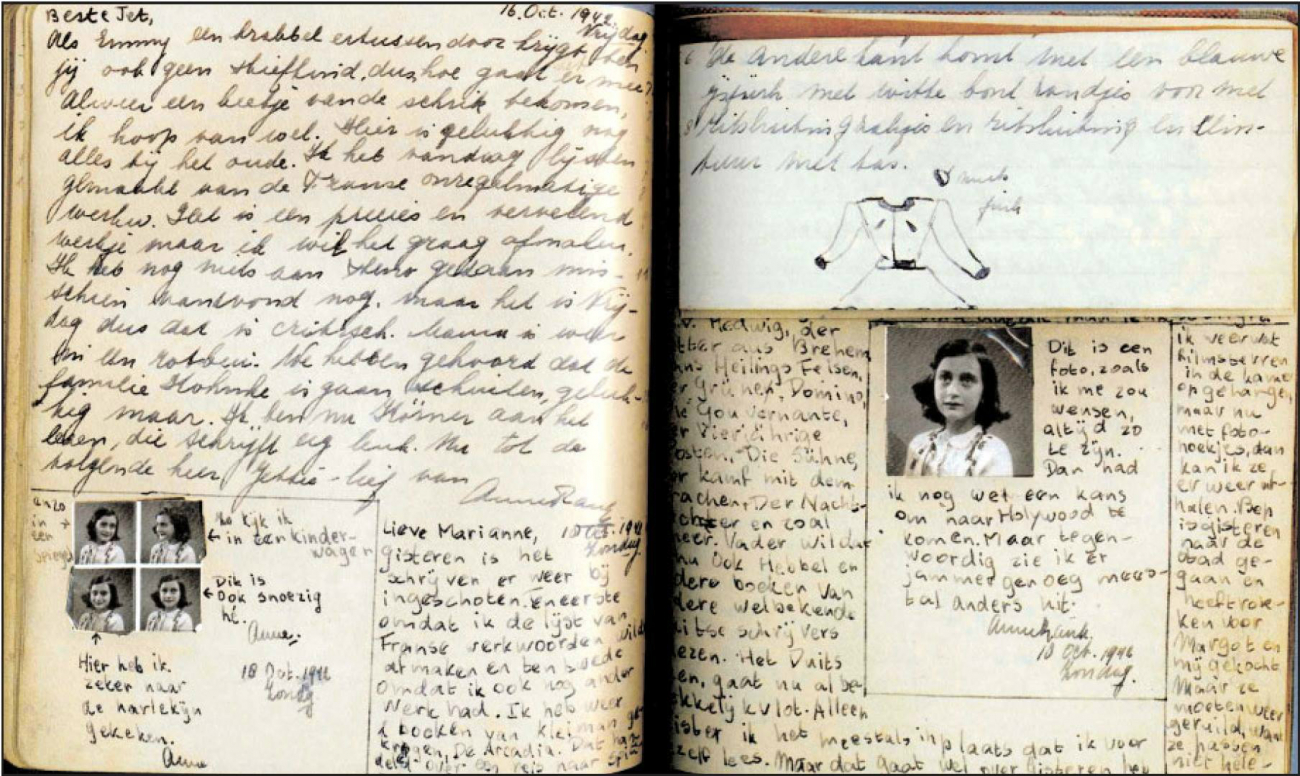 Beste Jet,
16. Oct. 1942.
Vrijdag
Als Emmy een krabbel ertussendoor krijgt ben
jij ook geen stiefkind, dus hoe gaat er mee?
Alweer een beetje van de schrik bekomen,
ik hoop van wel. Hier is gelukkig nog
alles bij het oude. Ik heb vandaag lijsten
gemaakt van de Franse onregelmatige
werkw. Dat is een precies en vervelend
werkje maar ik wil het graag afmaken.
Ik heb nog niets aan steno gedaan mis-
schien vanavond nog, maar het is Vrij-
dag dus dat is critisch. Mama is weer
in een rotbui. We hebben gehoord dat de
familie is gaan schuilen, geluk-
kig maar. Ik ben nu Körner aan het
lezen, die schrijft erg leuk. Nu tot de
volgende keer, Jettie-lief van
Anne Frank
enzo
in
een
spiegel
Zo kijk ik
in een kinder-
wagen
Dit is
ook snoezig
hé.
Anne.
Hier heb ik
zeker naar
de harlekijn
gekeken.
Anne
18 Oct. 1942
Zondag
Lieve Marianne,
Zondag
gisteren is het
schrijven er weer bij
ingeschoten. Eneerste
omdat ik de lijst van
Franse werkwoorden wilde
afmaken en ten twede
omdat ik ook nog ander
werk had. Ik heb weer
2 boeken van Kleiman ge-
kregen, De Arcadia. Dat han-
deld over een reis naar
de andere kant komt met een blauwe
met witte bont randjes voor met
ritssluiting en
tuur met tas.
Hedwig, der
aus Brehem,
Heilings Felsen,
Grüner, Domino,
Gouvernante,
Vierjährige
osten, Die Sühne,
kamf mit dem
rachen, Der Nacht-
en zoal
meer. Vader wil dat
nu ook Hebbel en
dere boeken van
dere welbekende
itse schrijvers
lezen. Het Duits
en, gaat nu al be-
kkelijk vlot. Alleen
ik het meestal inplaats dat ik voor
zelf lees. Maar dat gaat wel over
Dit is een
foto, zoals
ik me zou
wensen,
altijd zo
te zijn.
Dan had
ik nog wel een kans
om naar Holywood te
komen. Maar tegen-
woordig zie ik er
jammer genoeg mees-
tal anders uit.
Anne Frank.
18 Oct. 1942
Zondag.
ik veer wat
filmsterren
in de kamer
opgehangen,
maar nu
met foto-
hoekjes, dan
kan ik ze
er weer uit-
halen. Bep
is gisteren
naar de
stad ge-
gaan en
heeft rok-
ken voor
Margot en
mij gekocht
Maar ze
moeten weer
geruild, want
ze passen
niet hele-